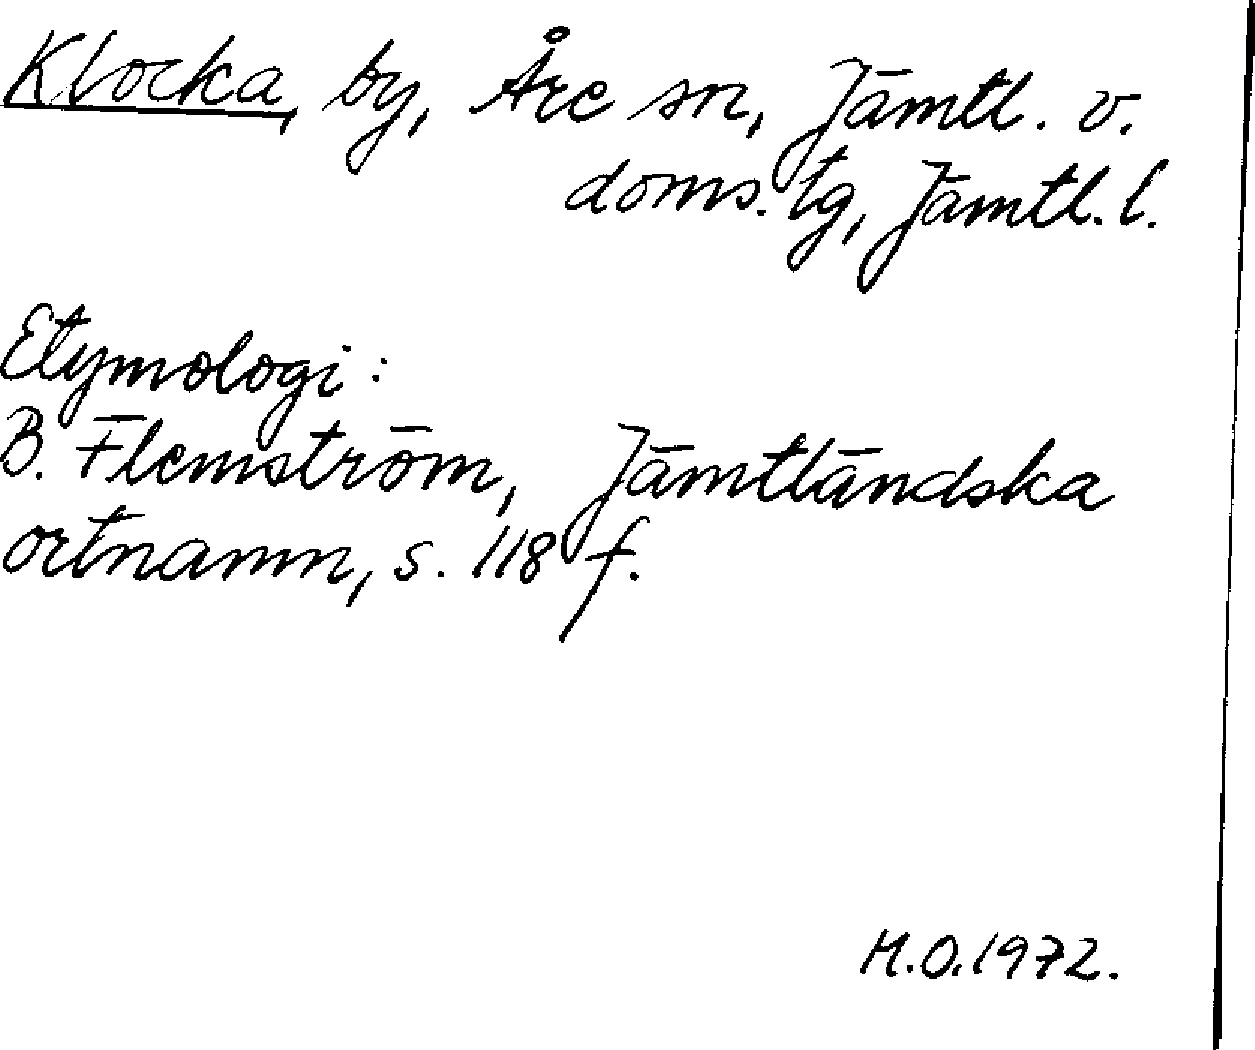 Klocka, by, Åre sn, Jämtl. v.
doms. tg, Jämtl. l.
Etymologi:
B. Flemström, Jämtländska
ortnamn, s. 118 f.
M.O.1972.